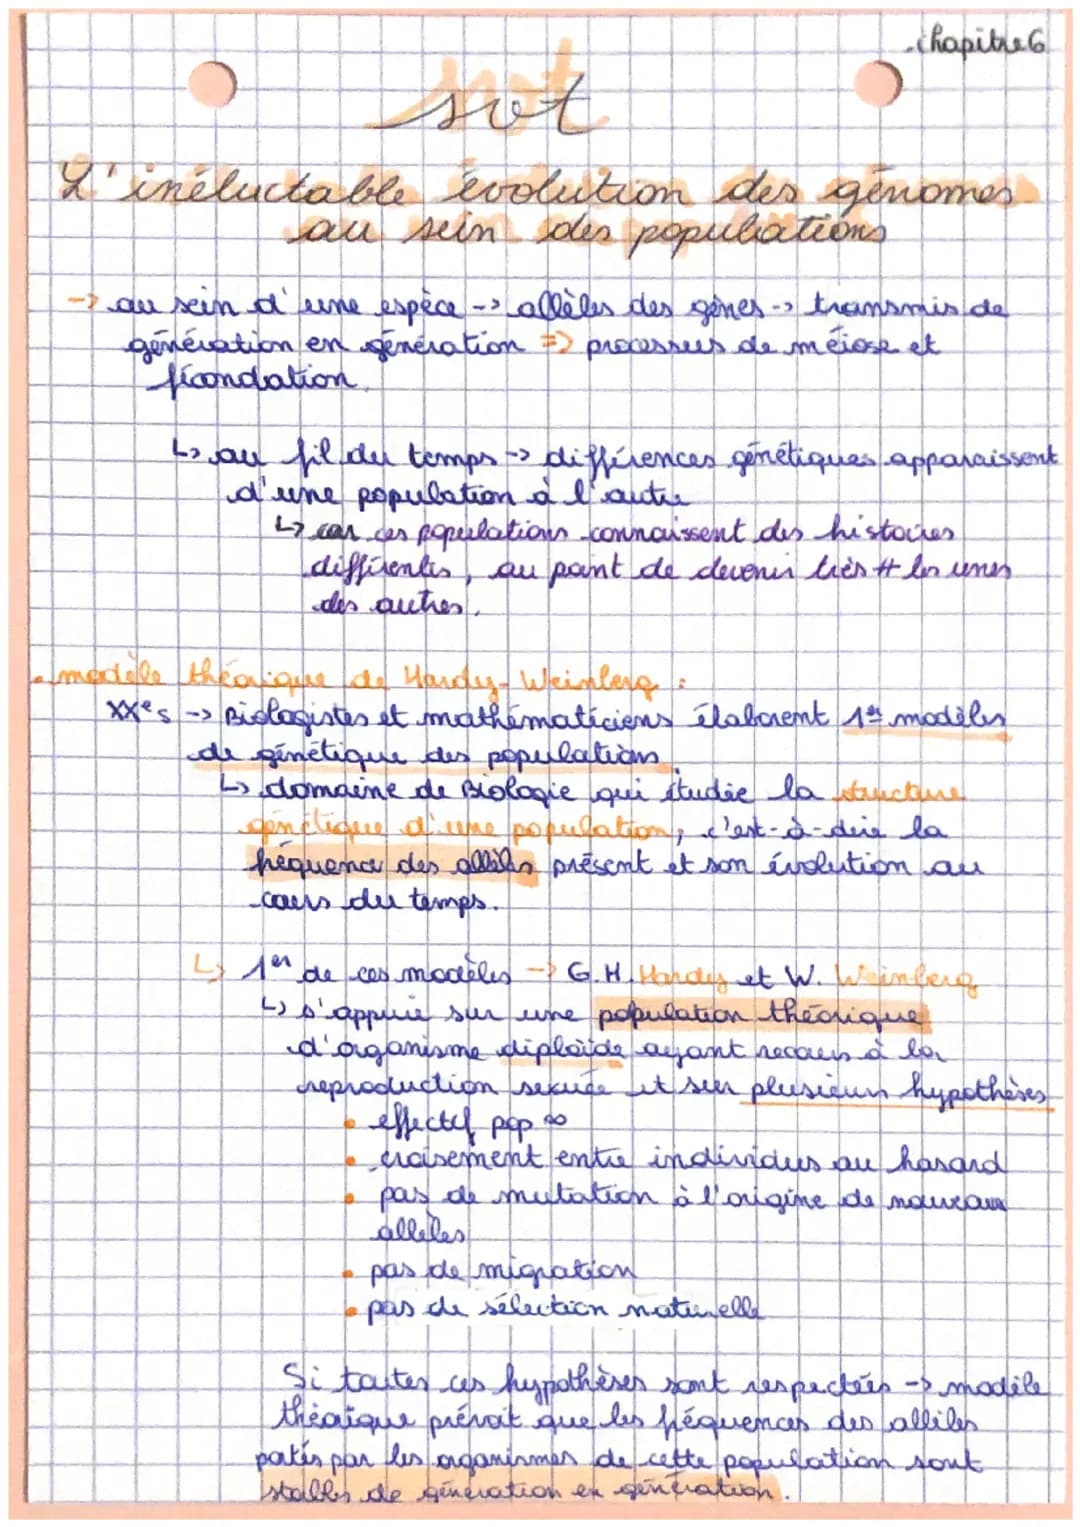 chapitre 6
svt
L'inéluctable évolution des génomes
au sein des populations
-> au sein d'une espèce -> allèles des gènes -> transmis de
génération en génération => processus de méiose et
fécondation.
↳ au fil du temps -> différences génétiques apparaissent
d'une population à l'autre
↳ car ces populations connaissent des histoires
différentes, au point de devenir très # les unes
des autres.
• modèle théorique de Hardy-Weinberg :
XXe s -> Biologistes et mathématiciens élaborent 1ers modèles
de génétique des populations.
↳ domaine de Biologie qui étudie la structure
génétique d'une population, c'est-à-dire la
fréquence des allèles présent et son évolution au
cours du temps.
↳ 1er de ces modèles -> G.H. Hardy et W. Weinberg
↳ s'appuie sur une population théorique
d'organisme diploïde ayant recours à la
reproduction sexuée et sur plusieurs hypothèses
• effectif pop ∞
• croisement entre individus au hasard
• pas de mutation à l'origine de nouveaux
allèles
• pas de migration
• pas de sélection naturelle
Si toutes ces hypothèses sont respectées -> modèle
théorique prévoit que les fréquences des allèles
portés par les organismes de cette population sont
stables de génération en génération.